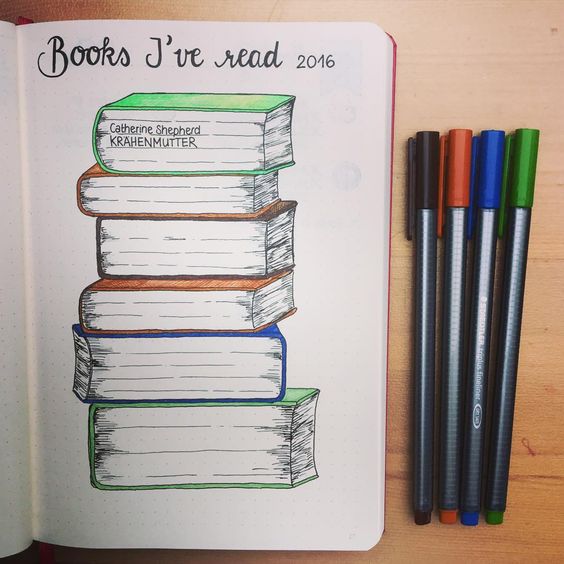 Books I've read 2016
Catherine Shepherd
KRÄHENMUTTER
STAEDTLER triplus fineliner